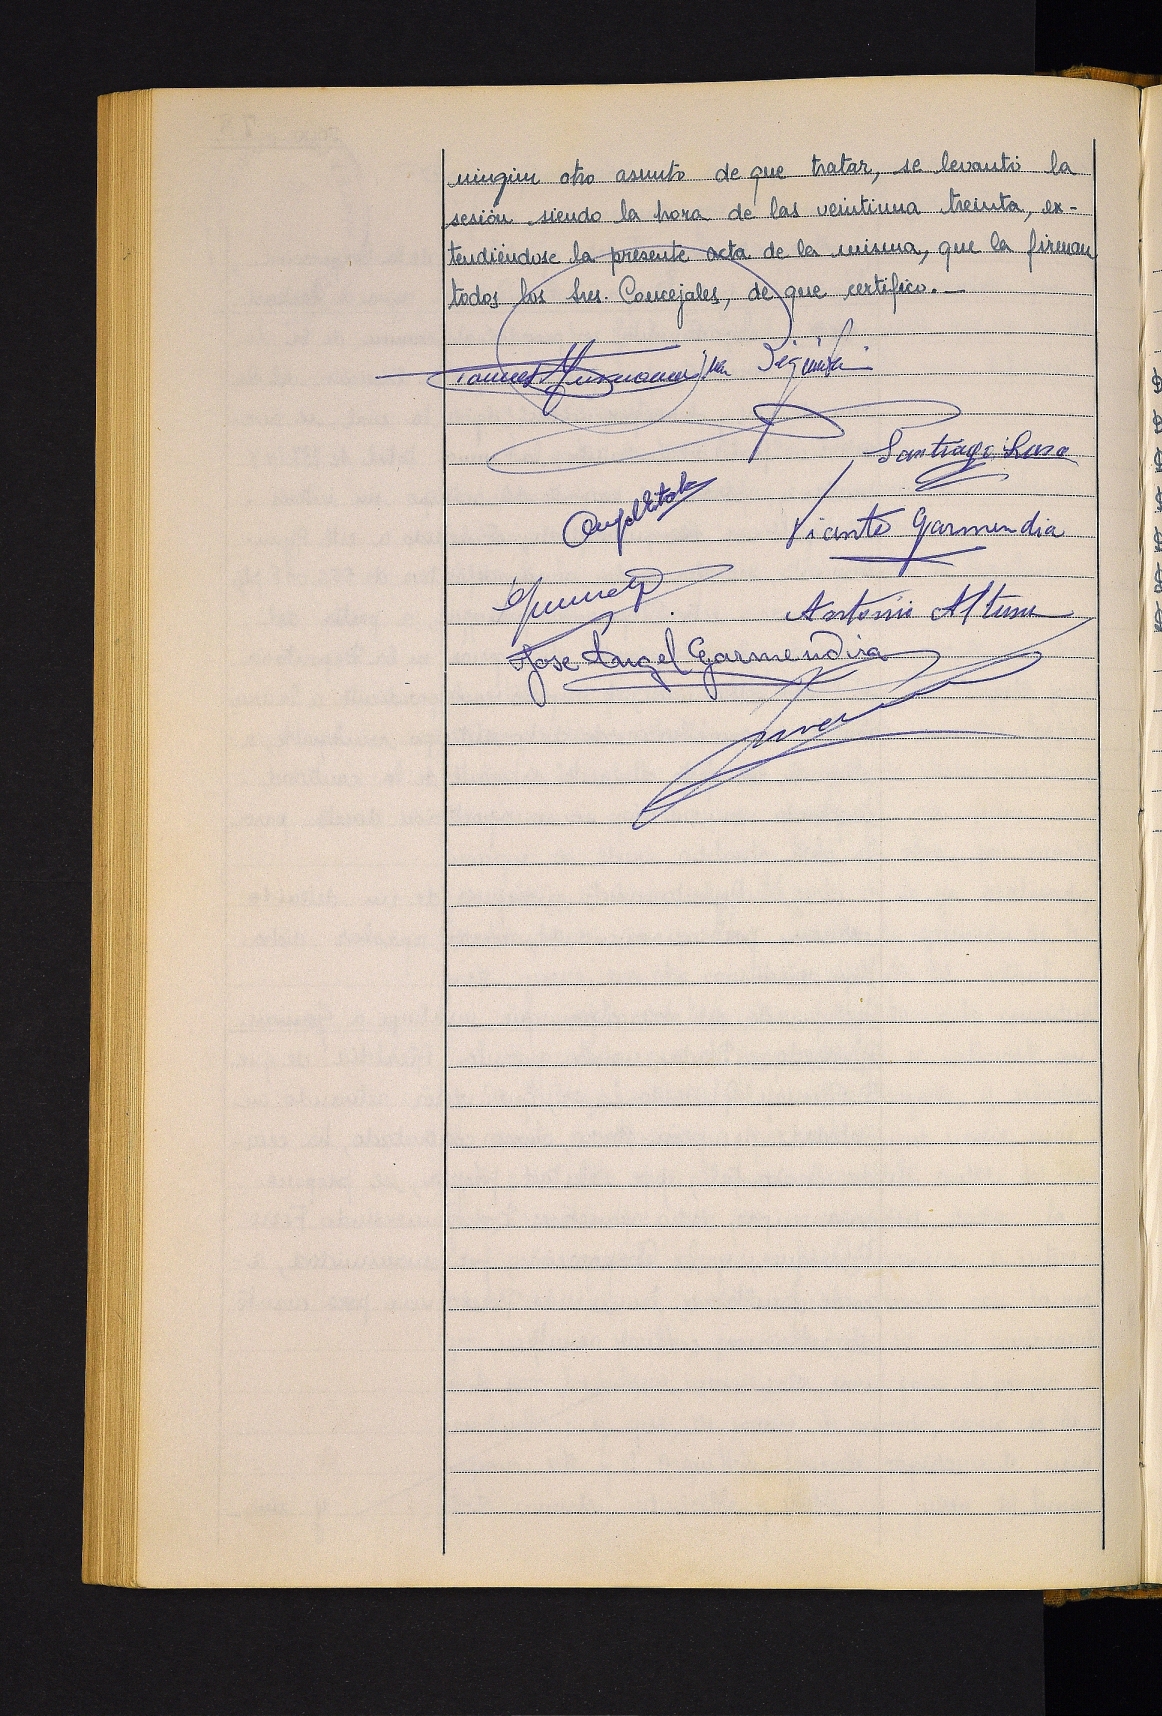 ningún otro asunto de que tratar, se levantó la
sesión siendo la hora de las veintiuna treinta, ex-
tendiéndose la presente acta de la misma, que la firman
todos los Sres. Concejales, de que certifico.—
Santiago Lasa
Vicente Garmendia
Antonio Altuna
Jose Angel Garmendia